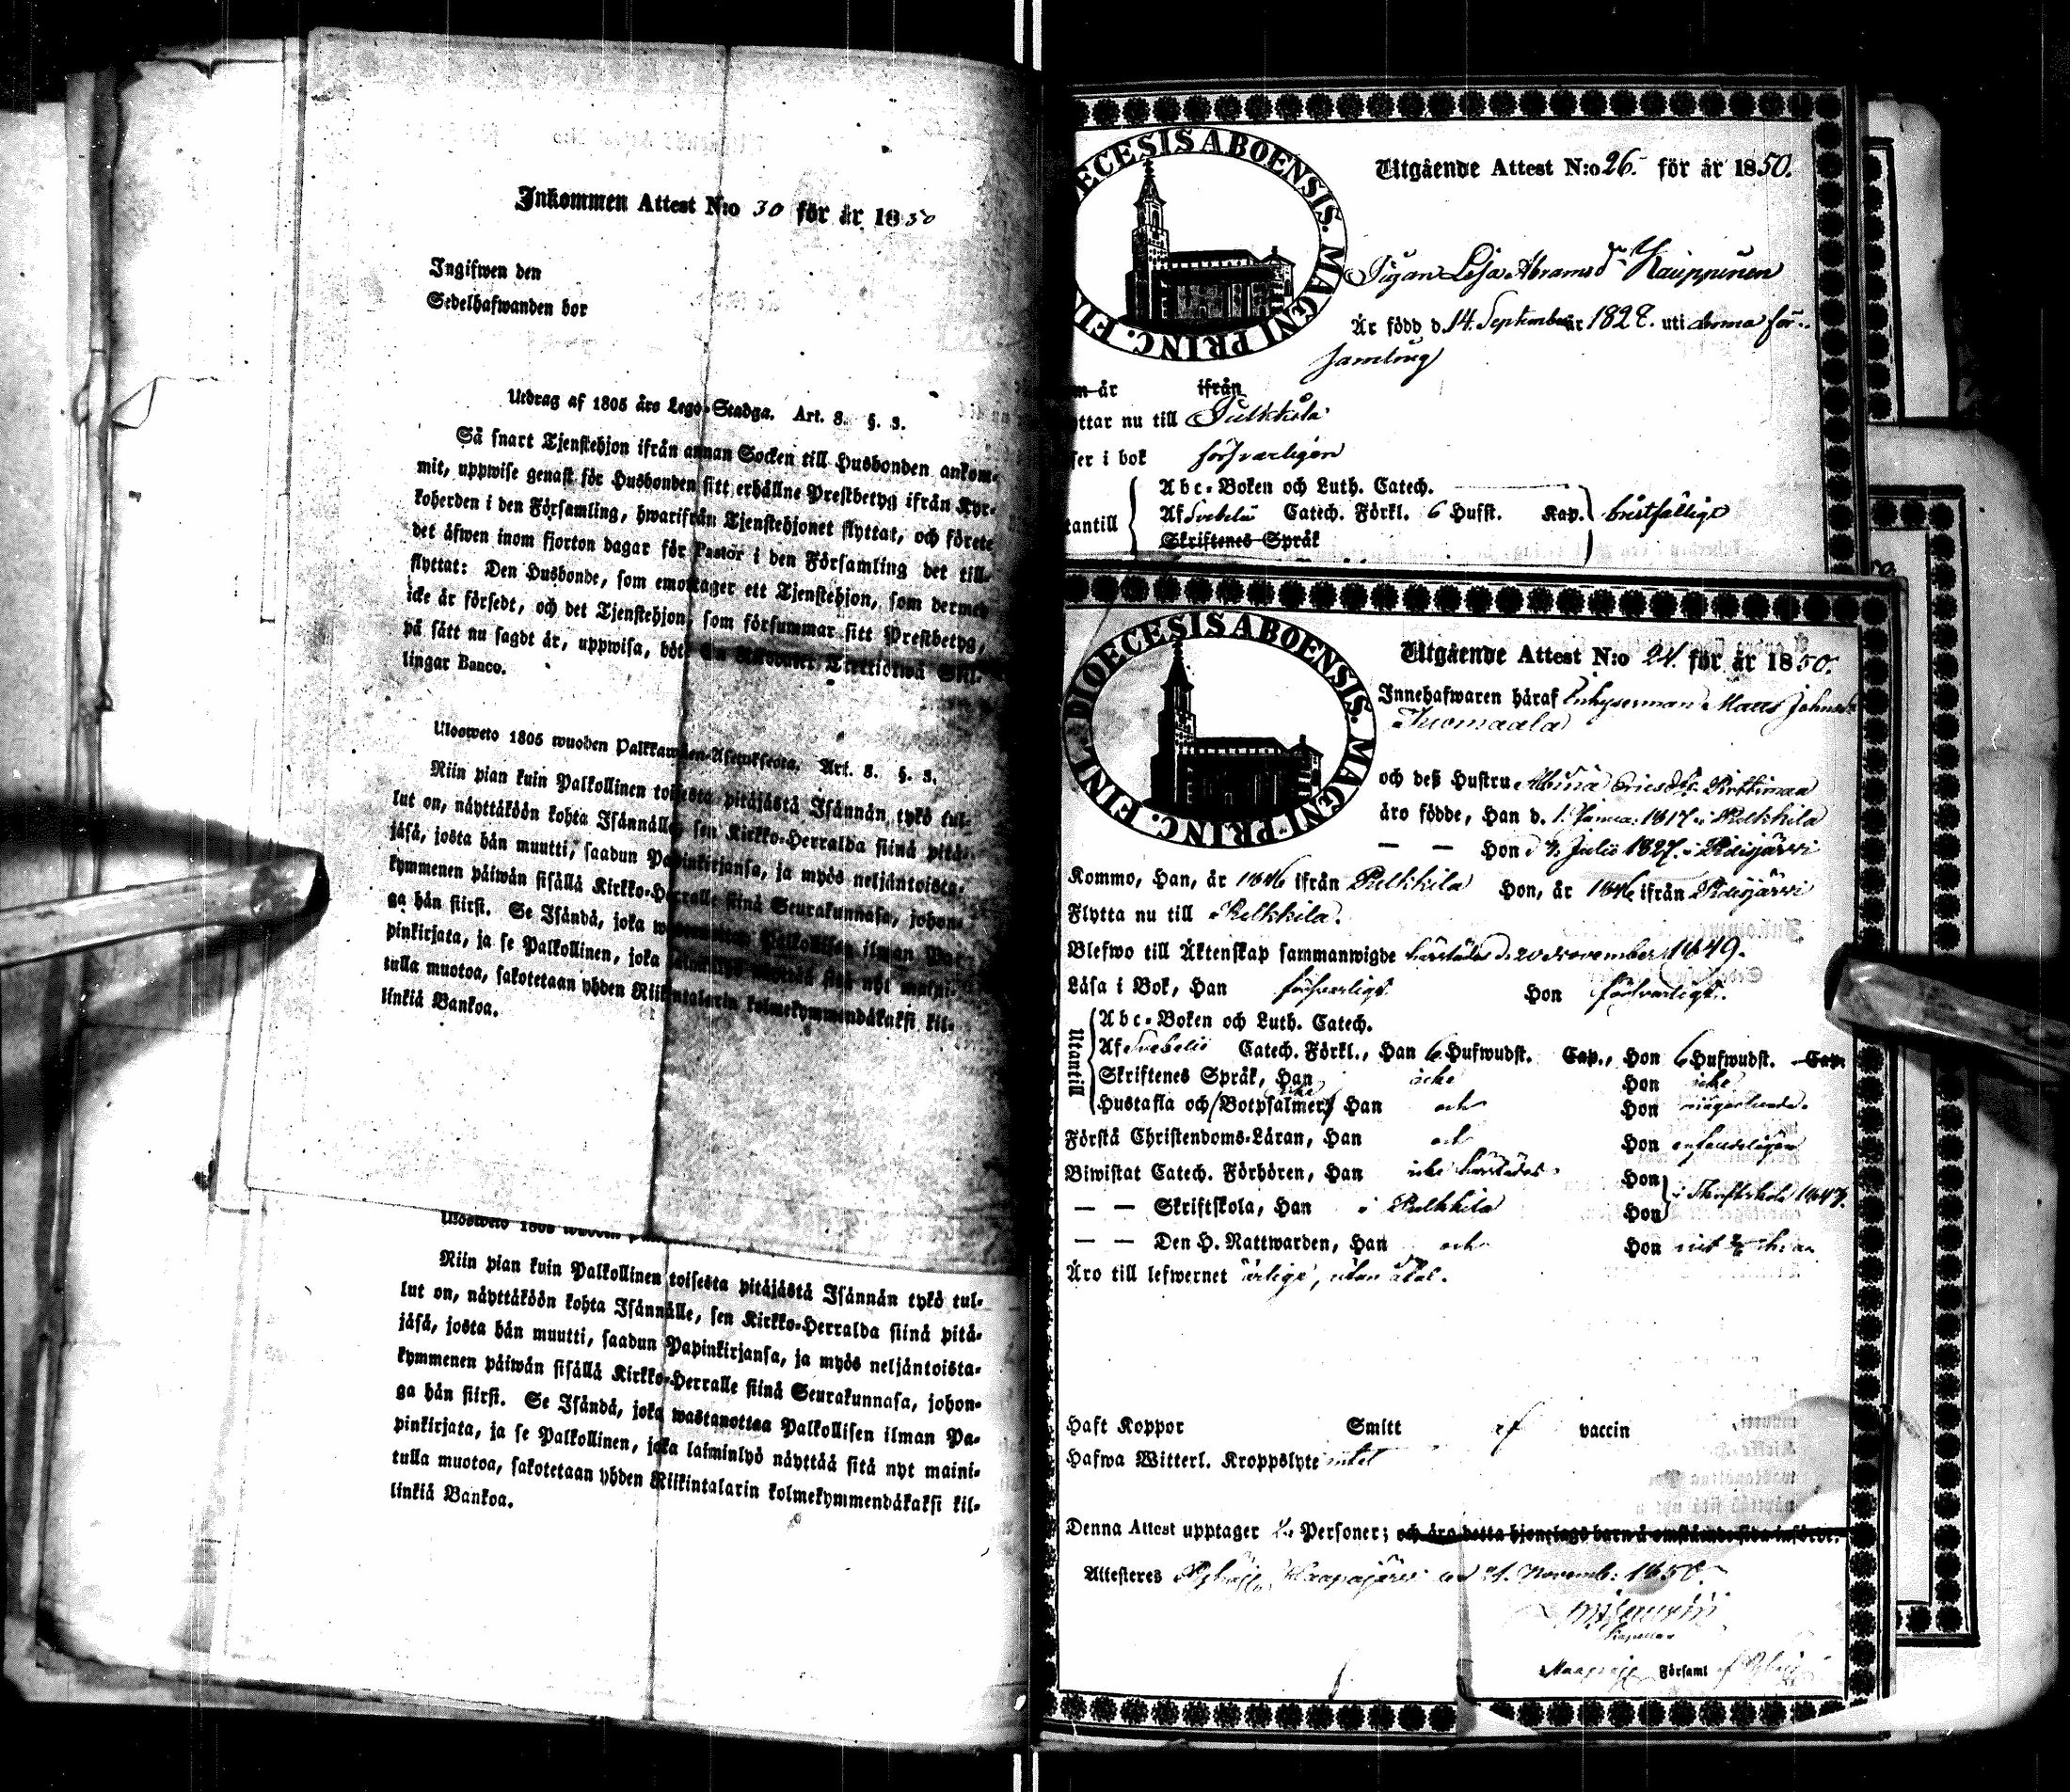 Inkommen Attest N:o 30 för år 1850
Ingifwen den
Sedelhafwanden bor
Utdrag af 1805 års Lego-Stadga. Art. 8. §. 3.
Så snart Tjenstehjon ifrån annan Socken till Husbonden ankom-
mit, uppwise genast för Husbonden sitt erhållne Prestbetyg ifrån Kyr-
koherden i den Församling, hwarifrån Tjenstehjonet flyttat, och förete
det äfwen inom fjorton dagar för Pastor i den Församling det till-
flyttat: Den Husbonde, som emottager ett Tjenstehjon, som dermed
icke är försedt, och det Tjenstehjon, som försummar sitt Prestbetyg,
på sätt nu sagdt är, uppwisa, böte En Riksdaler Trettiotwå Skil-
lingar Banco.
Ulosweto 1805 wuoden Palkkawäen-Asetuksesta. Art. 8. §. 3.
Niin pian kuin Palkollinen toisesta pitäjästä Isännän tykö tul-
lut on, näyttäköön kohta Isännälle, sen Kirkko-Herralda siinä pitä-
jäsä, josta hän muutti, saadun Papinkirjansa, ja myös neljäntoista-
kymmenen päiwän sisällä Kirkko-Herralle siinä Seurakunnasa, johon-
ga hän siirsi. Se Isändä, joka wastanottaa Palkollisen ilman Pa-
pinkirjata, ja se Palkollinen, joka laiminlyö näyttää sitä nyt maini-
tulla muotoa, sakotetaan yhden Riikintalarin kolmekymmendäkaksi kil-
linkiä Bankoa.
Ulosweto 1805 wuoden
Niin pian kuin Palkollinen toisesta pitäjästä Isännän tykö tul-
lut on, näyttäköön kohta Isännälle, sen Kirkko-Herralda siinä pitä-
jäsä, josta hän muutti, saadun Papinkirjansa, ja myös neljäntoista-
kymmenen päiwän sisällä Kirkko-Herralle siinä Seurakunnasa, johon-
ga hän siirsi. Se Isändä, joka wastanottaa Palkollisen ilman Pa-
pinkirjata, ja se Palkollinen, joka laiminlyö näyttää sitä nyt maini-
tulla muotoa, sakotetaan yhden Riikintalarin kolmekymmendäkaksi kil-
linkiä Bankoa.
ECESIS ABOENSIS. MAGNI PRINC. FINL
Utgående Attest N:o 26. för år 1850.
Pigan Lisa Abramsdr Kauppinen
Är född d. 14. September år 1828. uti denna för-
samling
m år ifrån
ttar nu till Pulkkila
ser i bok försvarligen
tantill
Abc-Boken och Luth. Catech.
Af Svebelii Catech. Förkl. 6 Hufst. Kap. bristfälligt
Skriftenes Språk
DIOECESIS ABOENSIS. MAGNI PRINC. FINL.
Utgående Attest N:o 24. för år 1850.
Innehafwaren häraf Inhyseman Matts Johns
Tuomaala
och deß Hustru Albina Ericsdr
äro födde, Han d. 1. Janua: 1817 i Pulkkila
— — Hon d. 7. Julii 1827. i Pidisjärvi
Kommo, Han, år 1846 ifrån Pulkkila Hon, år 1846 ifrån Pidisjärvi
Flytta nu till Pulkkila.
Blefwo till Äktenskap sammanwigde härstädes d. 20 November 1849.
Läsa i Bok, Han försvarligt Hon försvarligt.
Utantill
Abc-Boken och Luth. Catech.
Af Svebelii Catech. Förkl., Han 6 Hufwudst. Cap., Hon 6 Hufwudst. Cap.
Skriftenes Språk, Han icke Hon icke
Hustafla och (Botpsalmer) Han och Hon någorlunda.
Förstå Christendoms-Läran, Han och Hon enfaldeligen
Biwistat Catech. Förhören, Han icke härstädes Hon
— — Skriftskola, Han i Pulkkila Hon i Skriftskola 1847.
— — Den H. Nattwarden, Han och Hon
Äro till lefwernet ärlige, utan åtal.
Haft Koppor Smitt af vaccin
Hafwa Witterl. Kroppslyte intet
Denna Attest upptager 2 Personer; och äro detta hjonelags barn å omstående sida införde.
Attesteres Pyhäjoki, Haapajärvi den 21. Novemb: 1850.
Kapellan
Församl af